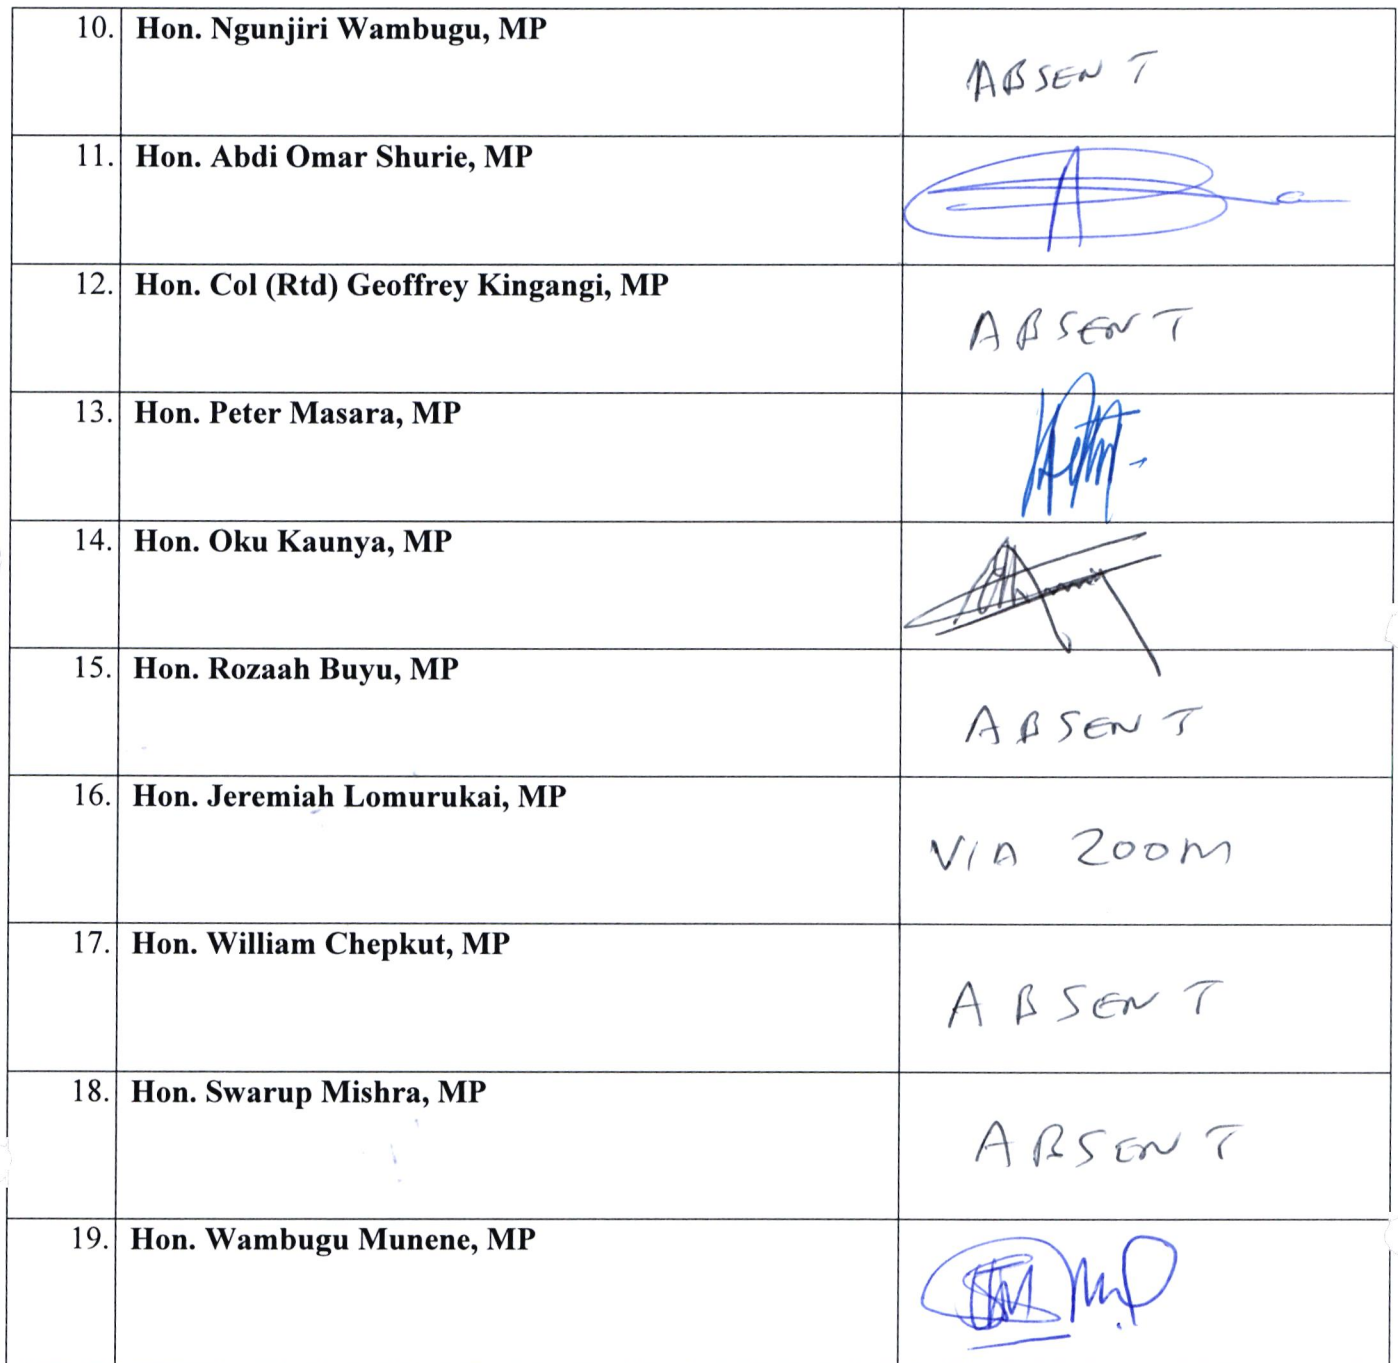 10. Hon. Ngunjiri Wambugu, MP ABSENT
11. Hon. Abdi Omar Shurie, MP
12. Hon. Col (Rtd) Geoffrey Kingangi, MP ABSENT
13. Hon. Peter Masara, MP
14. Hon. Oku Kaunya, MP
15. Hon. Rozaah Buyu, MP ABSENT
16. Hon. Jeremiah Lomurukai, MP VIA ZOOM
17. Hon. William Chepkut, MP ABSENT
18. Hon. Swarup Mishra, MP ABSENT
19. Hon. Wambugu Munene, MP